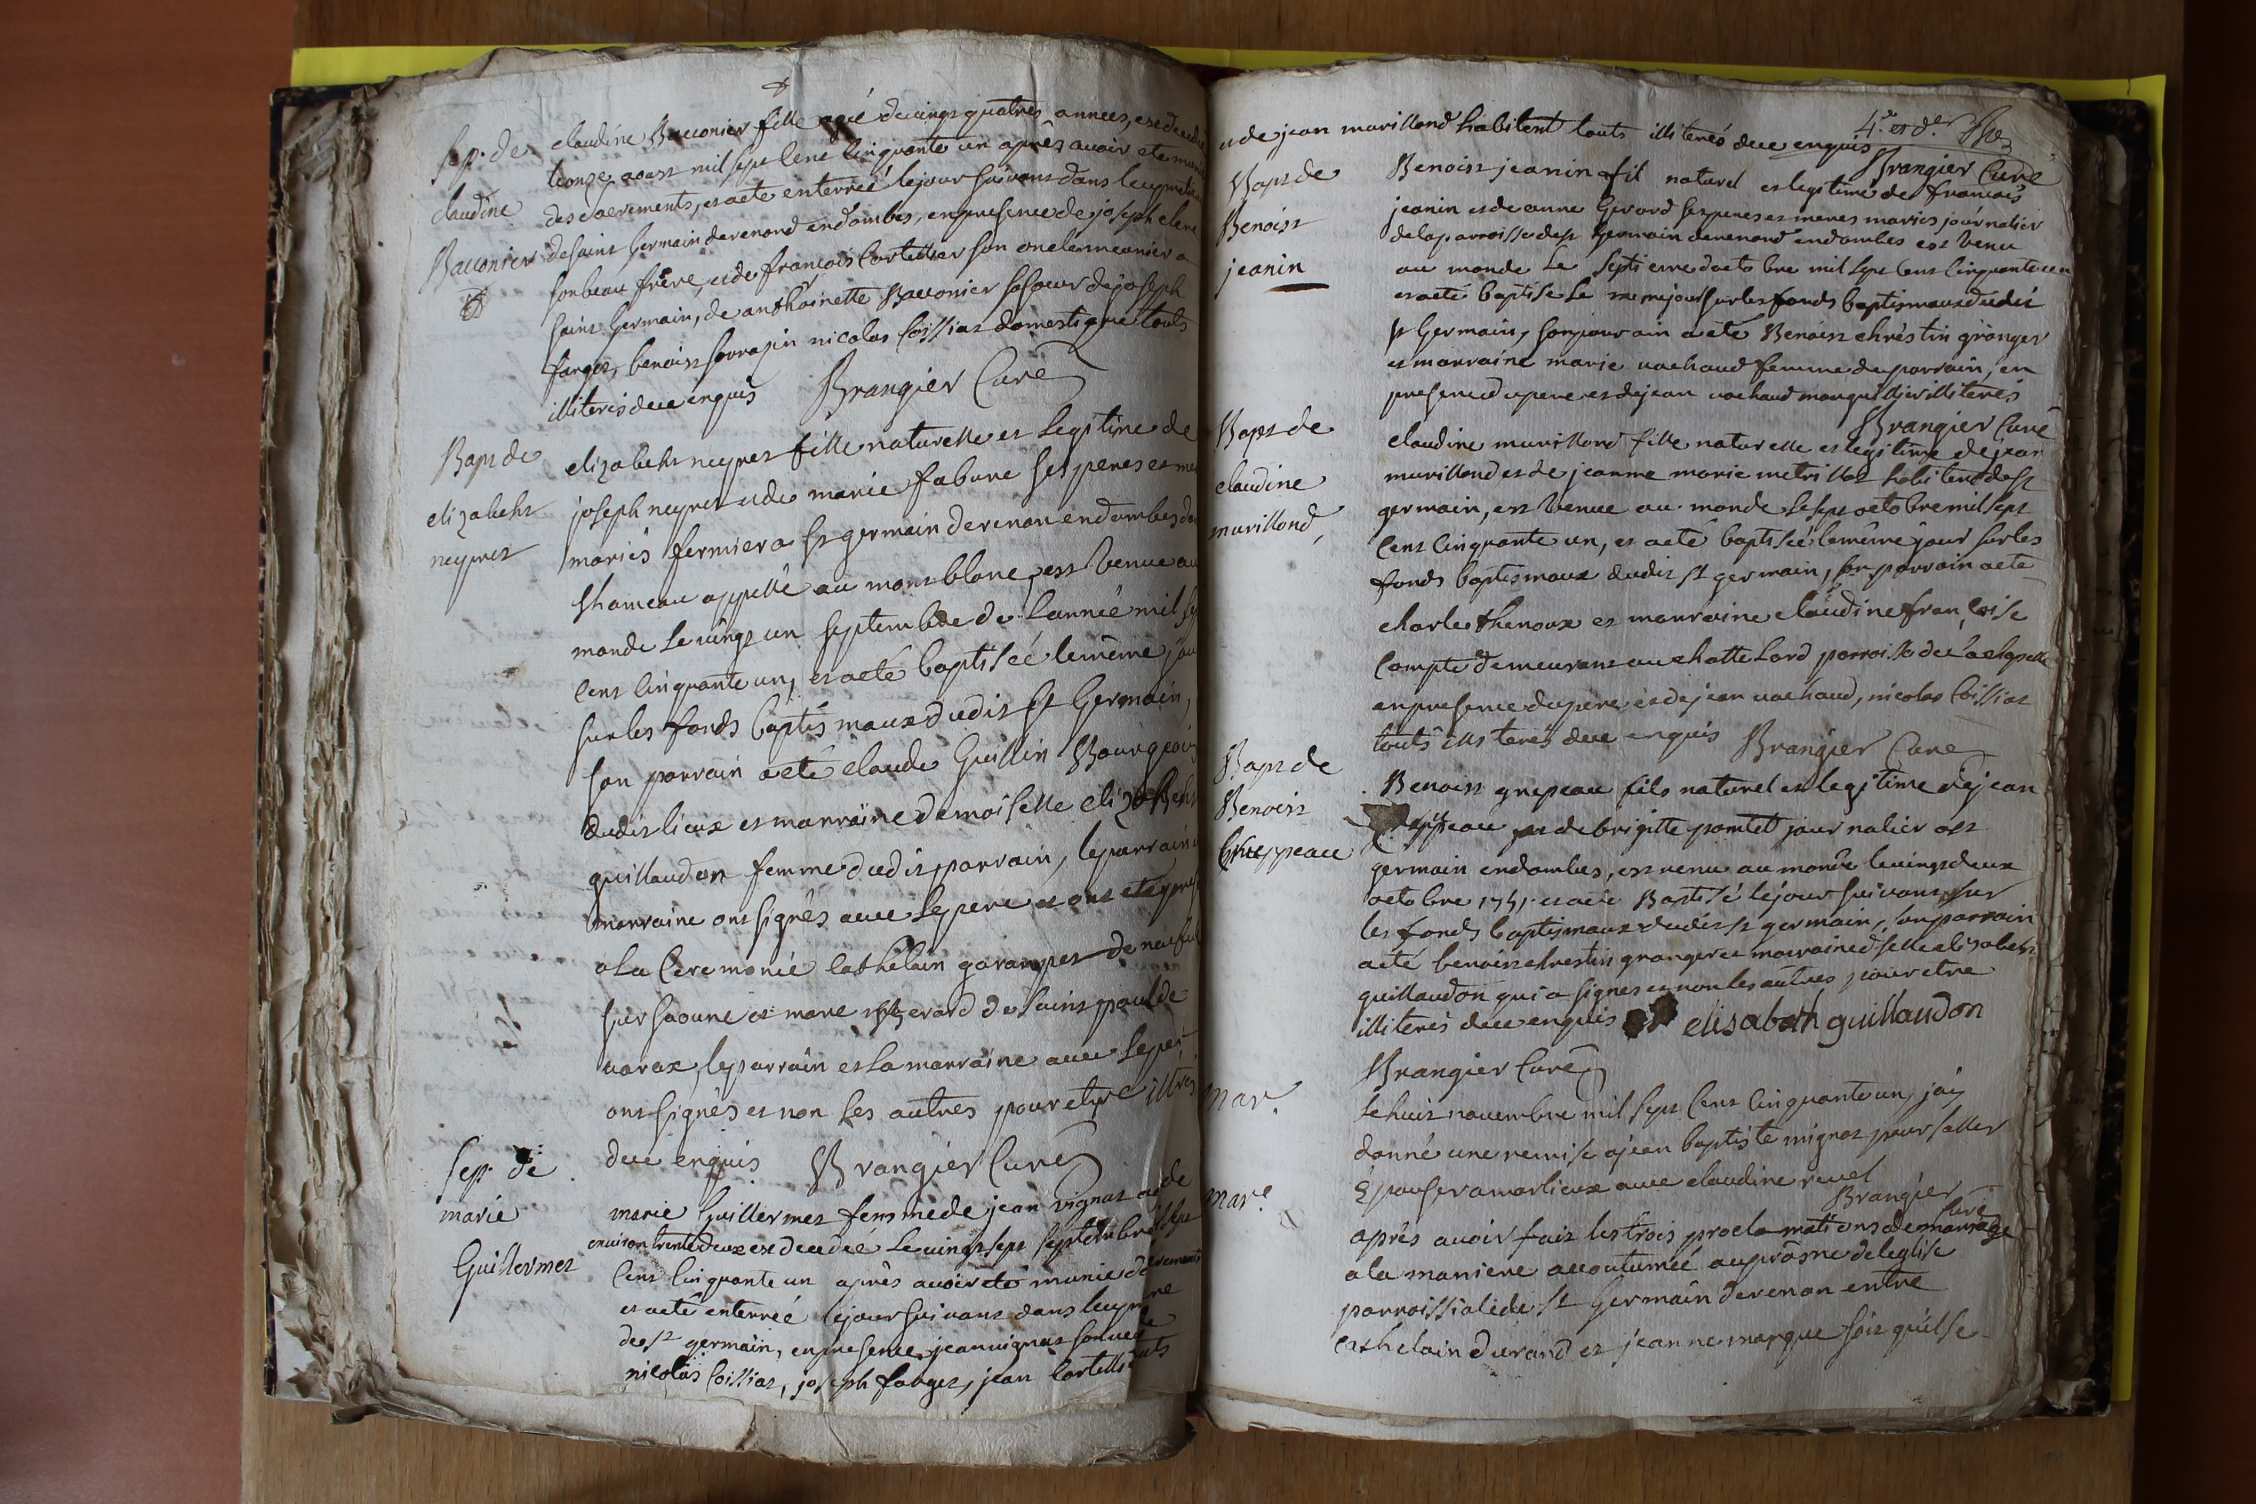 Sep. de
claudine
Bauonier
claudine Bauonier fille agée de vingt quatres années, est decedée
le onze aoust mil sept cent cinquante un après avoir eté munie
des sacrements, et a eté enterreé le jour suivant dans le cymetiere
de saint Germain de renond en dombes, en presence de joseph
son beau frère, et de françois Cortellier son oncle meunier a
saint Germain, de anthoinette Bauonier sa soeur de joseph
farges, benoist sarrazin nicolas Coissiat domestique touts
illiterés de ce enquis Brangier Curé
Bapt de
elizabeht
neyret
elizabeht neyret fille naturelle et legitime de
joseph neyret et de marie fabure ses peres et me
mariés fermier a St germain de renon en dombes da
l'hameau appellé au mont blanc, est venue au
monde le vingt un septembre de l'anneé mil se
cent cinquante un, et a eté baptiseé le même jou
sur les fonds baptismaux dudit St Germain,
son parrain a eté claude Guillin Bourgeois
dudit lieux et marraine demoiselle elizabeht
guillaudon femme dudit parrain, le parrain
marraine ont signés avec le pere et ont eté pre
a la ceremonie cathelain garampet de neufvil
sur saoune et marc gerard de saint paul de
varax, le parrain et la marraine avec le per
ont signés et non les autres pour etre illitres
de ce enquis Brangier Curé
Sep. de
marie
Guillermet
marie Guillermet femme de jean vignat agée de
environ trente deux est decedeé le vingt sept septembre mil sept
cent cinquante un après avoir eté munie de sacrements
et a eté enterreé le jour suivant dans le cymetiere
de st germain, en presence jean vignat son
nicolas Coissiat, joseph farges, jean Cortellier touts
4e et de
et de jean murillond habitent touts illiterés de ce enquis
Brangier Curé
Bapt de
Benoist
jeanin
Benoist jeanin fil naturel et legitime de francois
jeanin et de anne Gerard ses peres et meres mariés journalier
de la parroisse de st Germain de renond en dombes est venu
au monde le septieme d'octobre mil sept cent cinquante un
et a eté baptisé le meme jour sur les fonds baptismaux dudit
st Germain, son parrain a eté Benoist chrestin granger
et marraine marie vachaud femme du parrain, en
presence du pere et de jean vachaud marguillier illiterés
Brangier Curé
Bapt de
claudine
murillond
claudine murillond fille naturelle et legitime de jean
murillond et de jeanne marie metrillot habitent de st
germain, est venue au monde le sept octobre mil sept
cent cinquante un, et a eté baptiseé le même jour sur les
fonds baptismaux dudit st germain, son parrain a eté
charle thenoux et marraine claudine françoise
Compte demeurant au chattelard parroisse de La chapelle
en presence du pere et de jean vachaud, nicolas Coissiat
touts illiterés de ce enquis Brangier Curé
Bapt de
Benoist
Greppeau
Benoist grepeau fils naturel et legitime de jean
greppeau et de brigitte pontet journalier a st
germain en dombes, est venu au monde le vingt deux
octobre 1751 et a eté Baptisé le jour suivant sur
les fonds baptismaux dudit st germain, son parrain
a eté benoist chrestin granger et marraine dselle elisabeht
guillaudon qui a signés et non les autres pour etre
illiterés de ce enquis elisabeth guillaudon
Brangier Curé
mar.
le huit novembre mil sept cent cinquante un, j'ai
donné une remise a jean baptiste mignot pour s'aller
Epouser a marlieux avec claudine ruuel
Brangier
Curé
mare.
après avoir fait les trois proclamations de mariage
a la maniere accoutumée au prosne de leglise
parroissiale de st Germain de renon entre
Cathelain durand et jeanne marque soit qu'il se